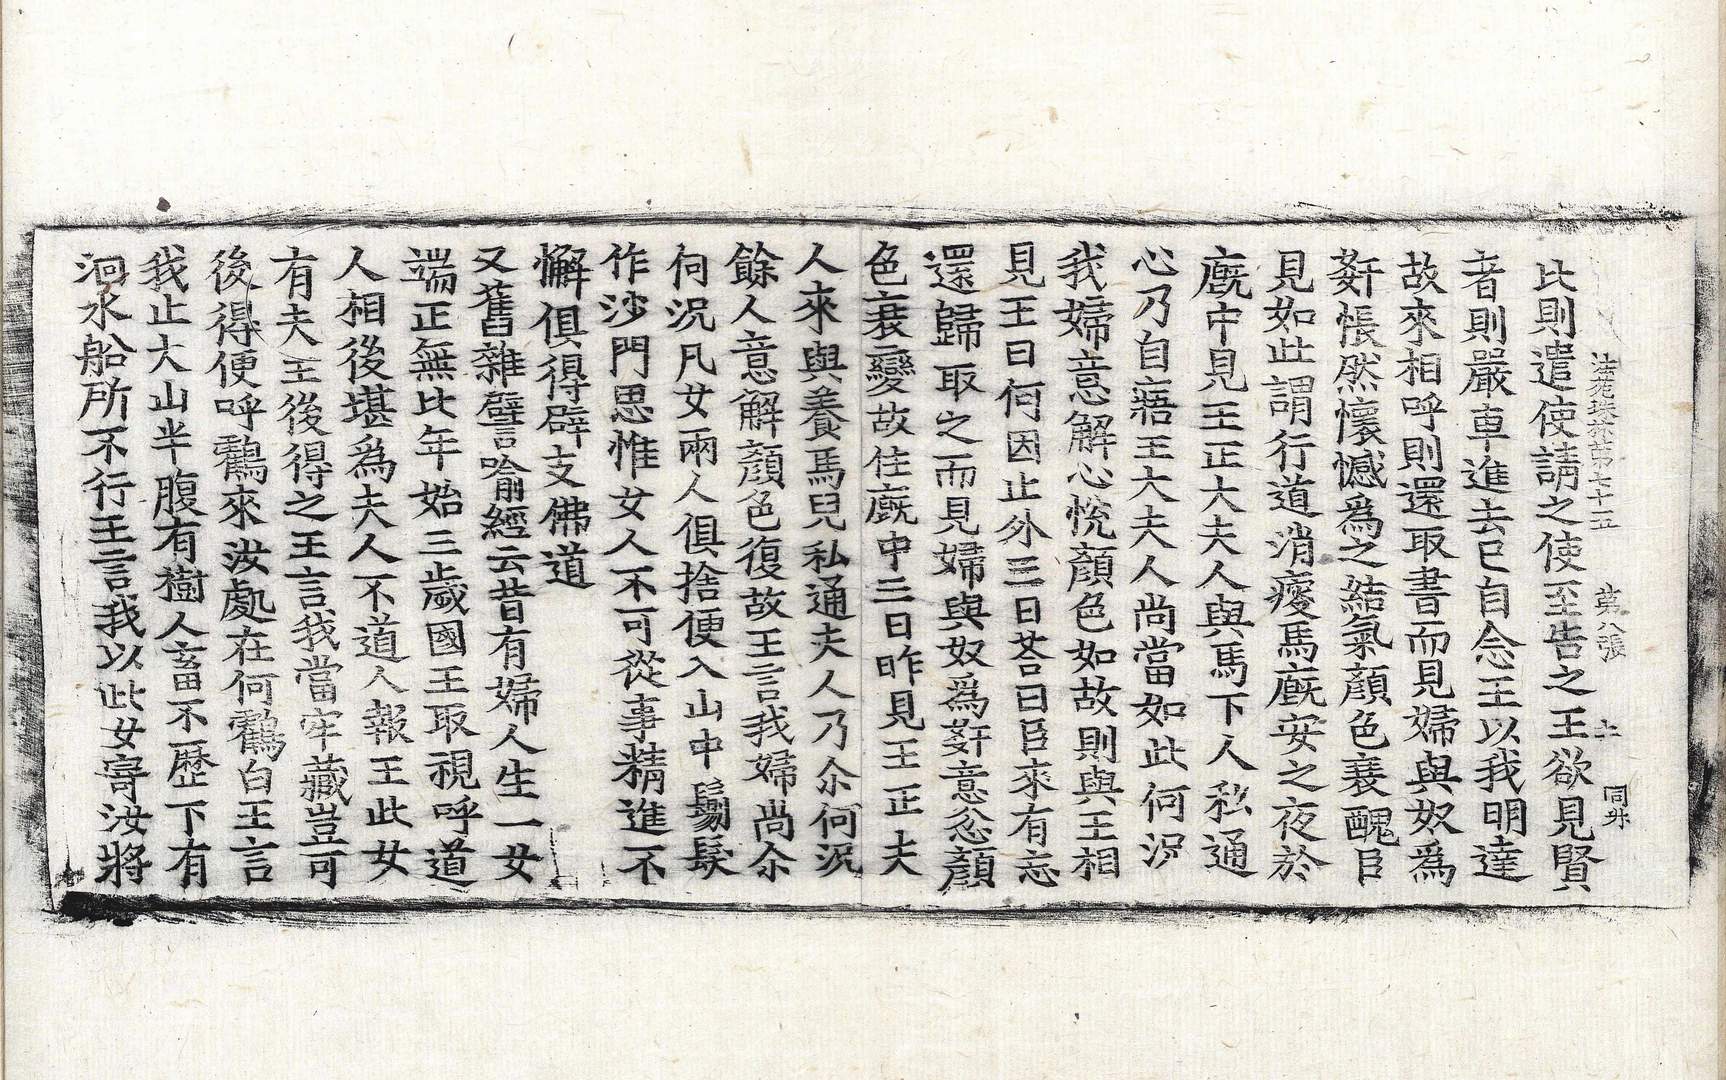 法苑珠林第七十五　第八張　士　同升
比則遣使請之使至告之王欲見賢
者則嚴車進去已自念王以我明達
故來相呼則還取書而見婦與奴為
姧悵然懷憾為之結氣顏色衰醜臣
見如此謂行道消瘦馬廐安之夜於
廐中見王正大夫人與馬下人私通
心乃自寤王大夫人尚當如此何況
我婦意解心悅顏色如故則與王相
見王曰何因止外三日荅曰臣來有忘
還歸取之而見婦與奴為姧意忿顏
色衰變故住廐中三日昨見王正夫
人來與養馬兒私通夫人乃尒何況
餘人意解顏色復故王言我婦尚尒
何況凡女兩人俱捨便入山中鬀髮
作沙門思惟女人不可從事精進不
懈俱得辟支佛道
又舊雜譬喻經云昔有婦人生一女
端正無比年始三歲國王取視呼道
人相後堪為夫人不道人報王此女
有夫王後得之王言我當牢藏豈可
後得便呼鸖來汝處在何鸖白王言
我止大山半腹有樹人畜不歷下有
洄水船所不行王言我以此女寄汝將